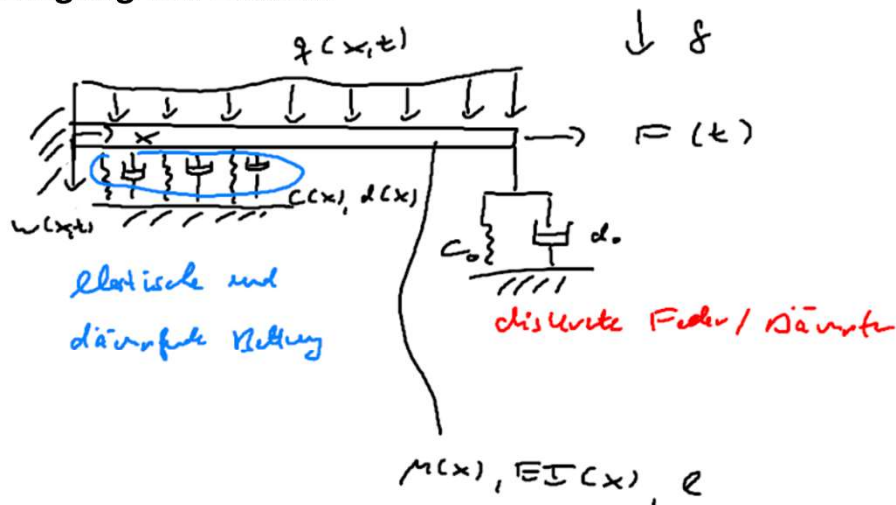 q(x,t)
↓ g
x
F(t)
w(x,t)
c(x), d(x)
c₀
d₀
elastische und
dämpfende Bettung
diskrete Feder/Dämpfer
μ(x), EI(x), l